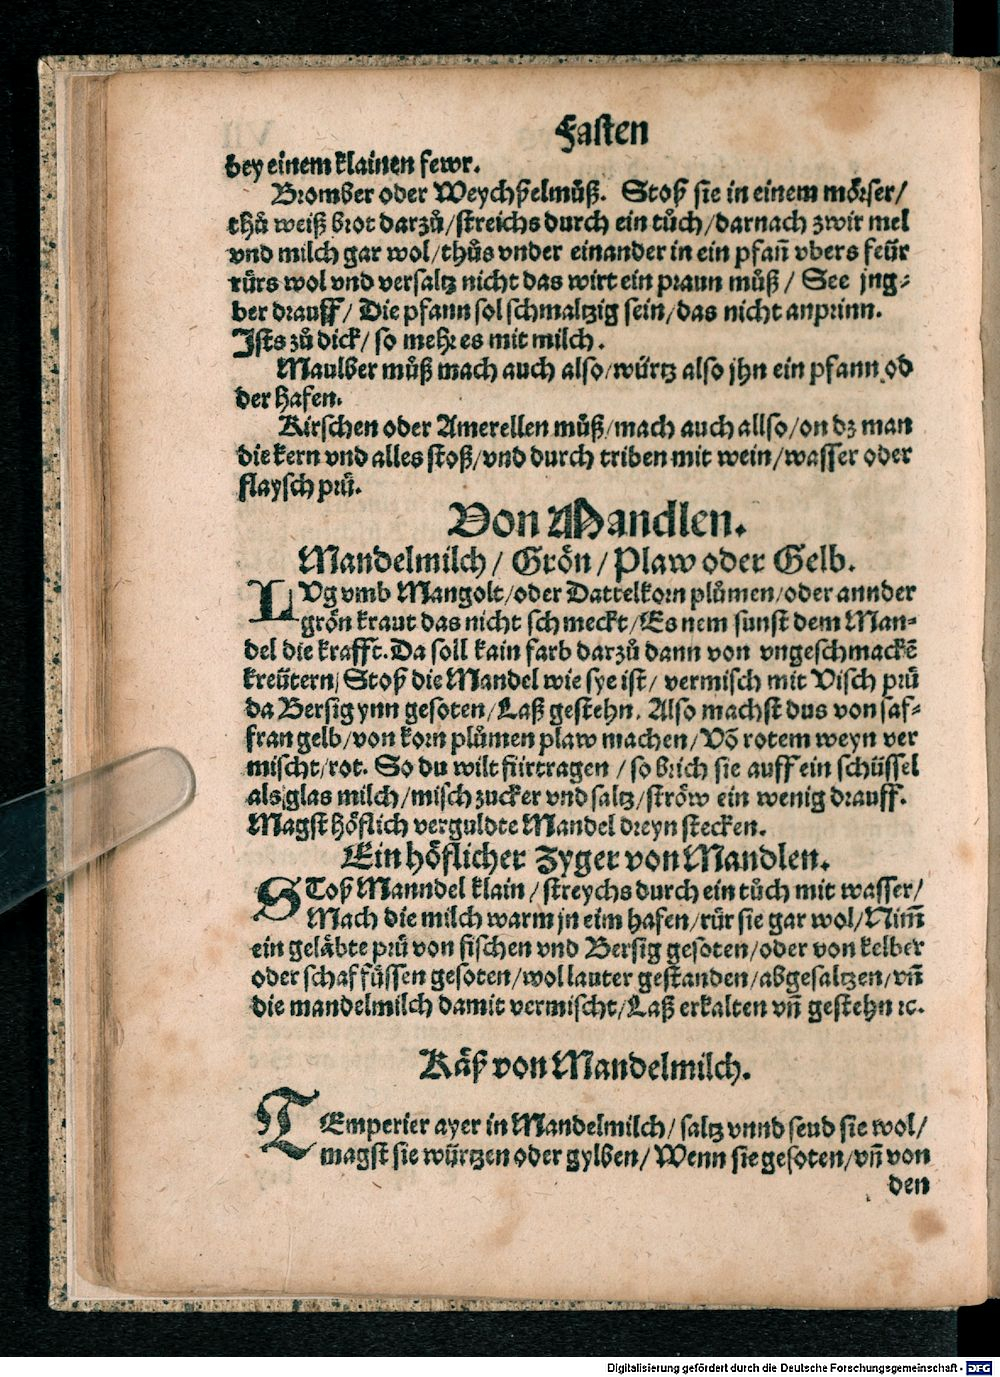 Fasten
bey einem klainen fewr.
Bromber oder Weychßelmůß. Stoß sie in einem mörser/
thů weiß brot darzů/streichs durch ein tůch/darnach zwir mel
vnd milch gar wol/thůs vnder einander in ein pfañ vbers feür
rürs wol vnd versaltz nicht das wirt ein praun můß/ See jng⸗
ber drauff/ Die pfann sol schmaltzig sein/das nicht anprinn.
Ists zů dick/ so mehr es mit milch.
Maulber můß mach auch also/würtz also jhn ein pfann od
der hafen.
Kirschen oder Amerellen můß/mach auch allso/on dz man
die kern vnd alles stoß/vnd durch triben mit wein/wasser oder
flaysch prü.
Von Mandlen.
Mandelmilch/ Grön/ Plaw oder Gelb.
LVg vmb Mangolt/oder Dattelkorn plůmen/oder annder
grön kraut das nicht schmeckt/Es nem sunst dem Man⸗
del die krafft. Da soll kain farb darzů dann von vngeschmackē
kreütern/ Stoß die Mandel wie sye ist/ vermisch mit Visch prü
da Bersig ynn gesoten/Laß gestehn. Also machst dus von saf⸗
fran gelb/von korn plůmen plaw machen/Vō rotem weyn ver
mischt/rot. So du wilt fürtragen/so brich sie auff ein schüssel
als glas milch/misch zucker vnd saltz/ströw ein wenig drauff.
Magst höflich verguldte Mandel dreyn stecken.
Ein höflicher Zyger von Mandlen.
SToß Manndel klain/streychs durch ein tůch mit wasser/
Mach die milch warm jn eim hafen/rür sie gar wol/Nim̄
ein geläbte prü von fischen vnd Bersig gesoten/oder von kelber
oder schaf füssen gesoten/wol lauter gestanden/abgesaltzen/vñ
die mandelmilch damit vermischt/Laß erkalten vñ gestehn ꝛc.
Käß von Mandelmilch.
TEmperier ayer in Mandelmilch/ saltz vnnd seud sie wol/
magst sie würtzen oder gylben/ Wenn sie gesoten/vñ von
den
Digitalisierung gefördert durch die Deutsche Forschungsgemeinschaft - DFG